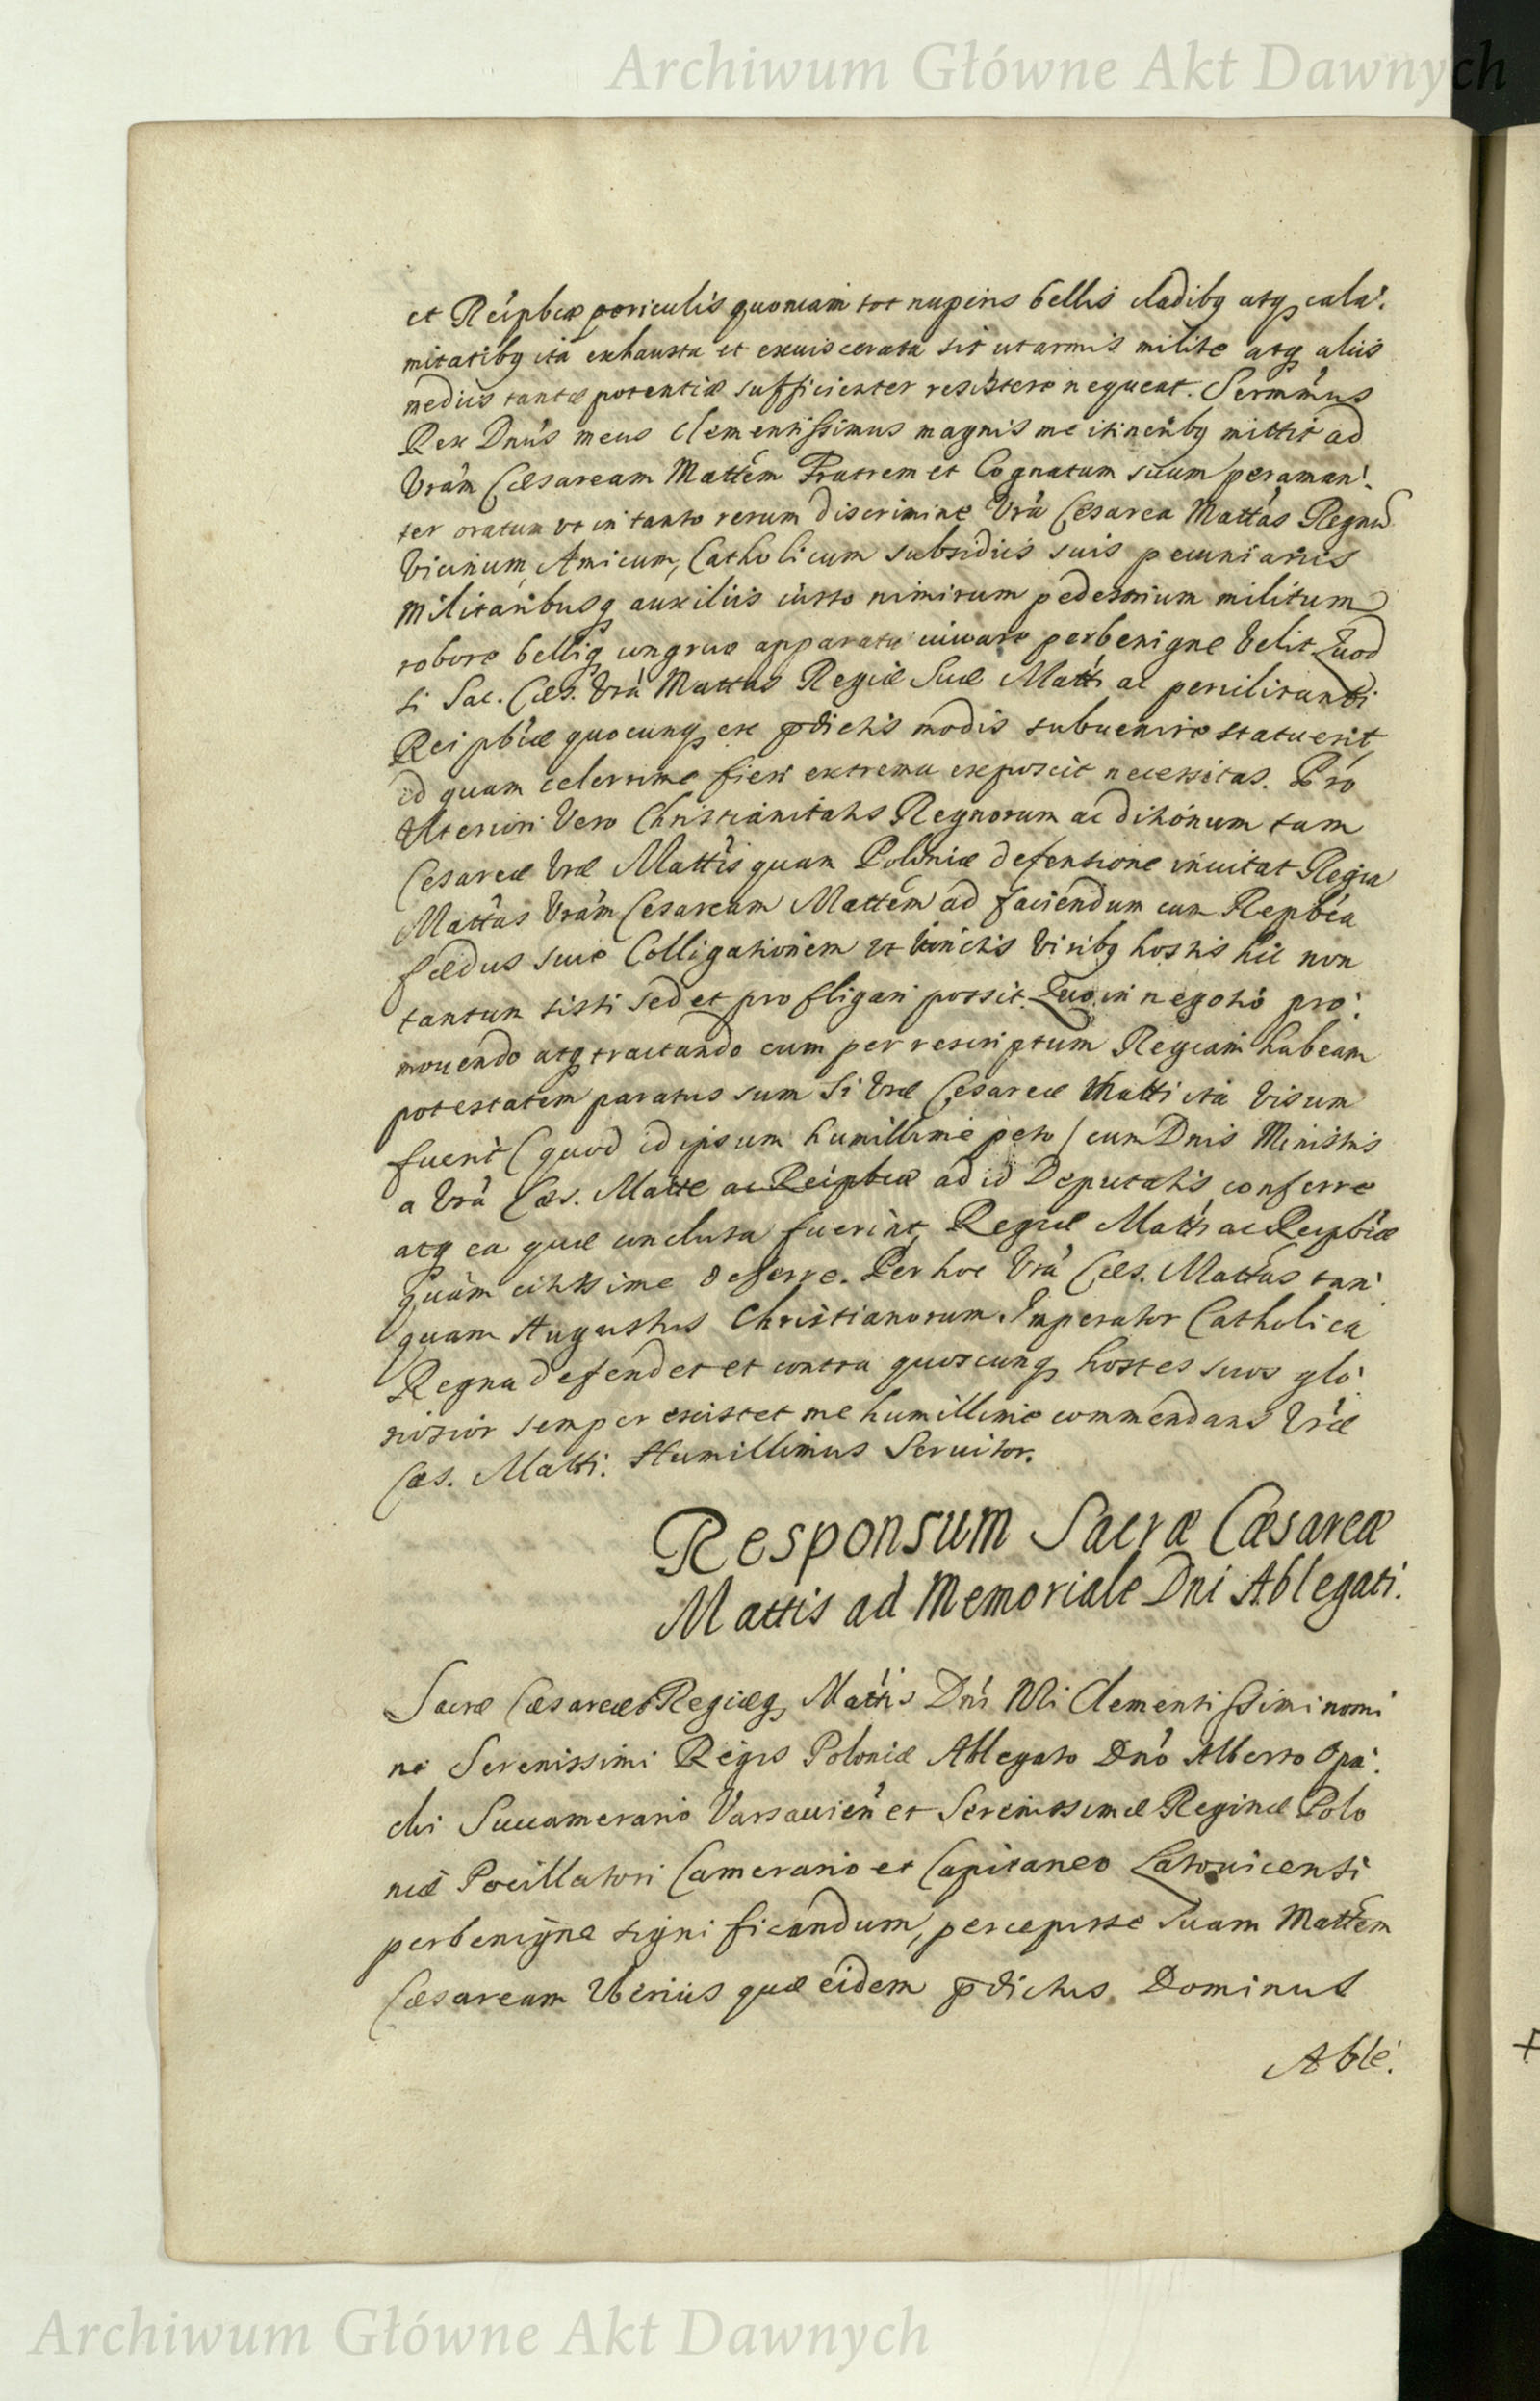 Archiwum Główne Akt Dawnych
et Reipbcæ periculis quoniam tot nuperis bellis cladibq atq cala:
mitatibq ita exhausta et exuiscerata sit ut armis milite atq aliis
mediis tantæ potentiæ sufficienter resistere nequeat. Sermūs
Rex Dnus meus clementissimus magnis me itineribq mittit ad
Vram Cæsaream Mattem Fratrem et Cognatum suum peraman:
ter oratum ut in tanto rerum discrimine Vra Cesarea Mattas Regnū
Vicinum, Amicum, Catholicum subsidiis suis pecuniariis
militaribusq auxiliis iusto nimirum pedestrium militum
robore belliq congruo apparatu iuuare perbenigne velit Quod
si Sac. Cæs. Vra Mattas Regiæ Suæ Matti ac periclitanti
Reipbcæ quocunq ex pdictis modis subuenire statuerit,
id quam celerrime fieri extrema exposcit necessitas. Pro
Ulteriori Vero Christianitatis Regnorum ac ditionum tam
Cesareæ Vræ Mattis quam Poloniæ defensione inuitat Regia
Mattas Vram Cesaream Mattem ad faciendum cum Repbca
fædus siue Colligationem ut iunctis Viribq hostis hic non
tantum sisti sed et profligari possit. Quo in negotio pro:
mouendo atq tractando cum per rescriptum Regiam habeam
potestatem paratus sum si Vræ Cesareæ Matti ita visum
fuerit (quod id ipsum humillime peto) cum Dnis Ministris
a Vra Cæs. Matte ac Reipbcæ ad id Deputatis conferre
atq ea quæ conclusa fuerint, Regiæ Matti ac Reipbcæ
quam citissime deferre. Per hoc Vra Cæs. Mattas tan:
quam Augustus Christianorum Imperator Catholica
Regna defendet et contra quoscunq hostes suos glo:
riosior semper existet me humillime commendans Vræ
Cæs. Matti. Humillimus Seruitor.
Responsum Sacræ Cæsareæ
Mattis ad Memoriale Dni Ablegati.
Sacræ Cæsareæ Regiæq Mattis Dni Nri Clementissimi nomi
ne Serenissimi Regis Poloniæ Ablegato Dno Alberto Opa:
cki Succamerario Varsauien et Serenissimæ Reginæ Polo
niæ Pocillatori Camerario et Capitaneo Latouicensi
perbenigne significandum, percepisse Suam Mattem
Cæsaream Uberius quæ eidem pdictus Dominus
Able:
Archiwum Główne Akt Dawnych